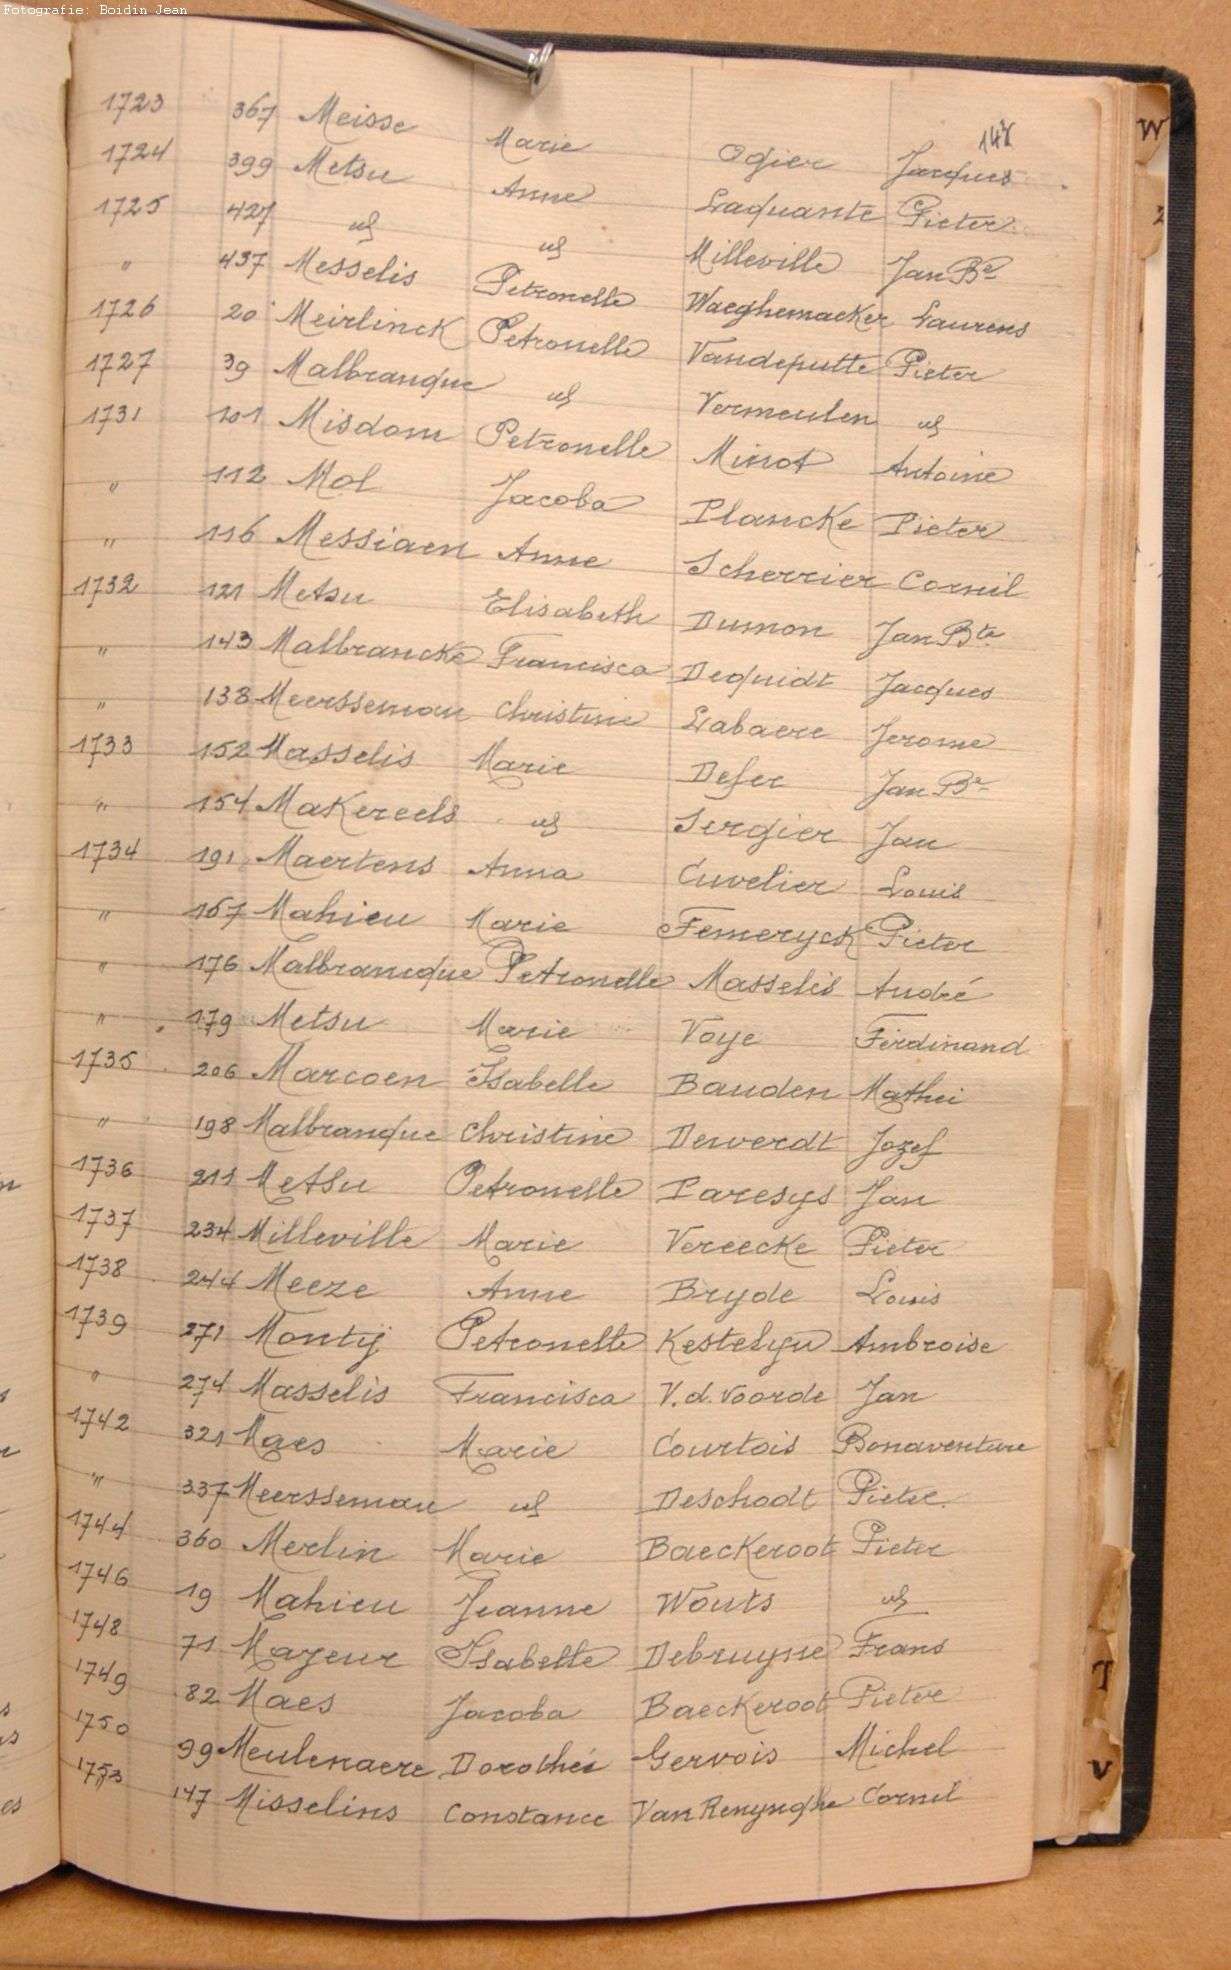 Fotografie: Boidin Jean
W
1723 367 Meisse Marie Ogier Jacques
1724 399 Metsu Anne Laquante Pieter
1725 427 id id Milleville Jan Bte
" 437 Messelis Petronelle Waeghemacker Laurens
1726 20 Meirlinck Petronelle Vandeputte Pieter
1727 39 Malbranque id Vermeulen id
1731 101 Misdom Petronelle Minot Antoine
" 112 Mol Jacoba Plancke Pieter
" 116 Messiaen Anne Scherrier Cornil
1732 121 Metsu Elisabeth Dumon Jan Bte
" 143 Malbrancke Francisca Dequidt Jacques
" 138 Meersseman Christine Labaere Jerome
1733 152 Masselis Marie Defer Jan Bte
" 154 Makereels id Sergier Jan
1734 191 Maertens Anna Cuvelier Louis
" 167 Mahieu Marie Femeryck Pieter
" 176 Malbrancque Petronelle Masselis André
" 179 Metsu Marie Voye Ferdinand
1735 206 Marcoen Isabelle Bauden Mathei
" 198 Malbranque Christine Dewerdt Jozef
1736 211 Metsu Petronelle Paresys Jan
1737 234 Milleville Marie Vereecke Pieter
1738 244 Meeze Anne Bryde Louis
1739 271 Montij Petronelle Kestelyn Ambroise
" 274 Masselis Francisca V.d.Voorde Jan
1742 321 Maes Marie Courtois Bonaventure
" 337 Meersseman id Deschodt Pieter
1744 360 Merlin Marie Baeckeroot Pieter
1746 19 Mahieu Jeanne Wouts id
1748 71 Mayeur Isabelle Debruyne Frans
1749 82 Maes Jacoba Baeckeroot Pieter
1750 99 Meulenaere Dorothée Gervois Michel
1753 147 Misselins Constance Van Renynghe Cornil
T
V